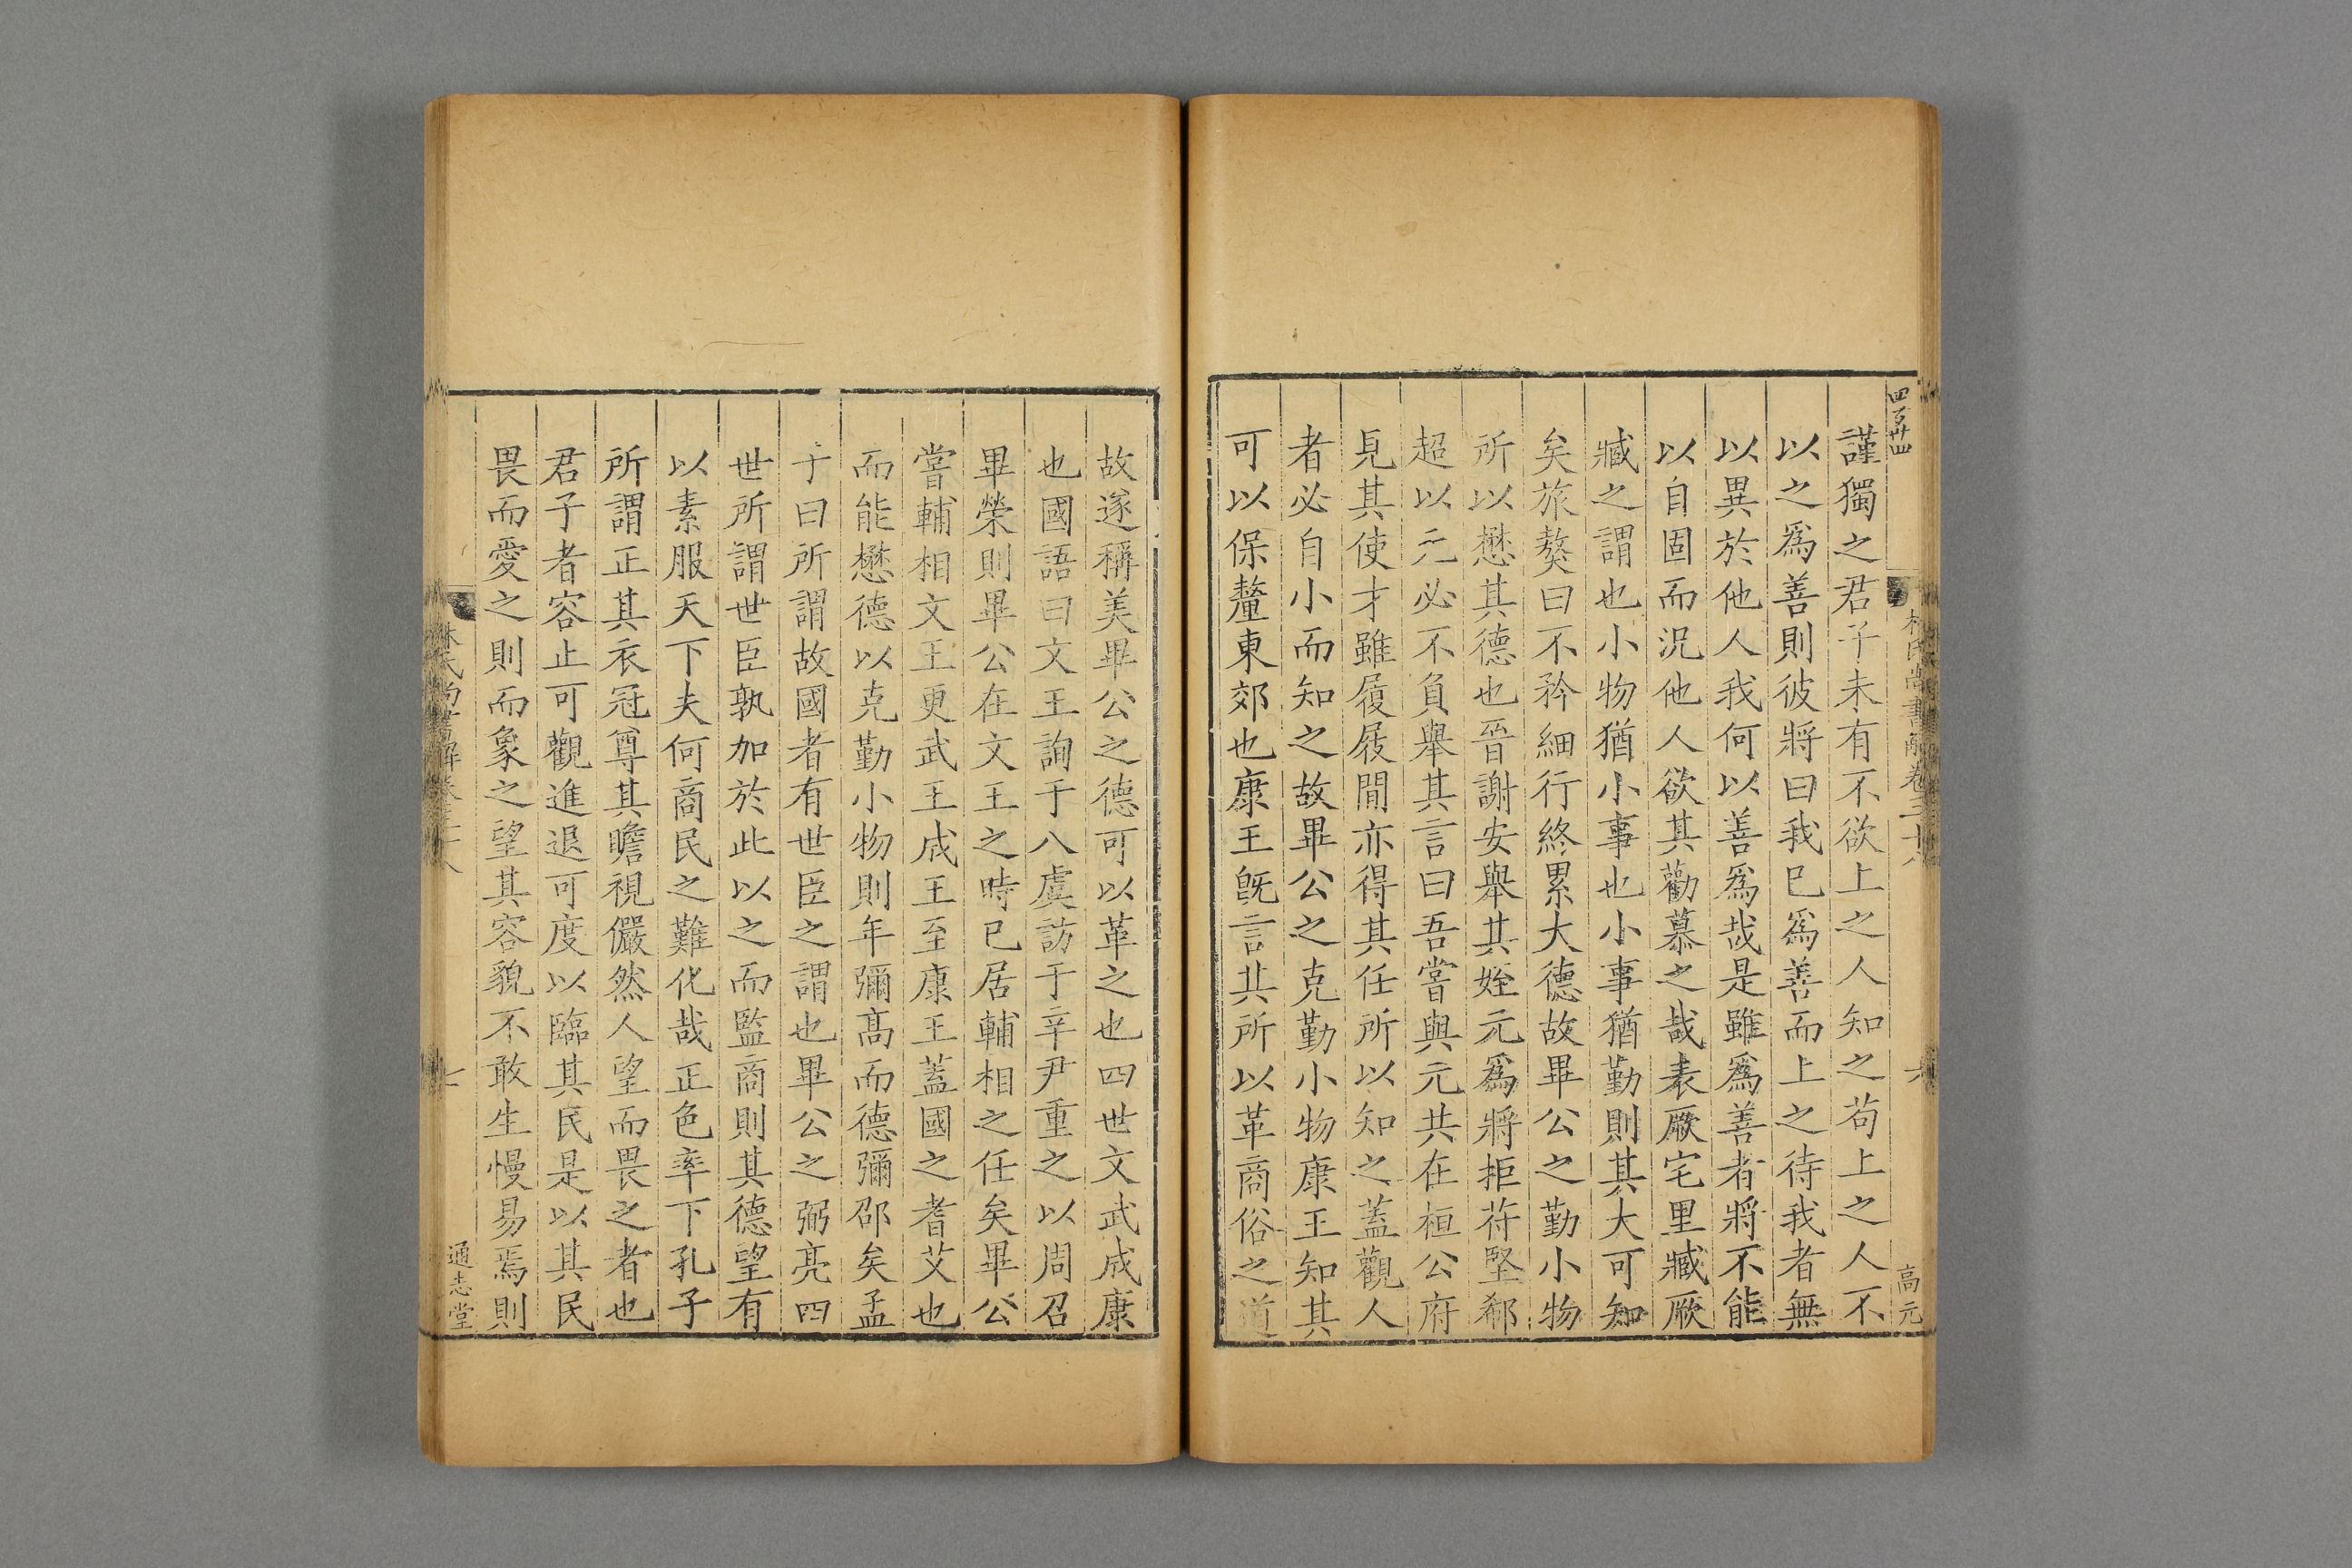 四百卅四
林氏尚書解卷三十八
六
高元
謹獨之君子未有不欲上之人知之苟上之人不
以之爲善則彼將曰我已爲善而上之待我者無
以異於他人我何以善爲哉是雖爲善者將不能
以自固而況他人欲其勸慕之哉表厥宅里臧厥
臧之謂也小物猶小事也小事猶勤則其大可知
矣旅獒曰不矜細行終累大德故畢公之勤小物
所以懋其德也晉謝安舉其姪元爲將拒苻堅郗
超以元必不負舉其言曰吾嘗與元共在桓公府
見其使才雖履屐間亦得其任所以知之蓋觀人
者必自小而知之故畢公之克勤小物康王知其
可以保釐東郊也康王旣言其所以革商俗之道
故遂稱美畢公之德可以革之也四世文武成康
也國語曰文王詢于八虞訪于辛尹重之以周召
畢榮則畢公在文王之時已居輔相之任矣畢公
嘗輔相文王更武王成王至康王蓋國之耆艾也
而能懋德以克勤小物則年彌高而德彌邵矣孟
子曰所謂故國者有世臣之謂也畢公之弼亮四
世所謂世臣孰加於此以之而監商則其德望有
以素服天下夫何商民之難化哉正色率下孔子
所謂正其衣冠尊其瞻視儼然人望而畏之者也
君子者容止可觀進退可度以臨其民是以其民
畏而愛之則而象之望其容貌不敢生慢易焉則
林氏尚書解卷三十八
七
通志堂